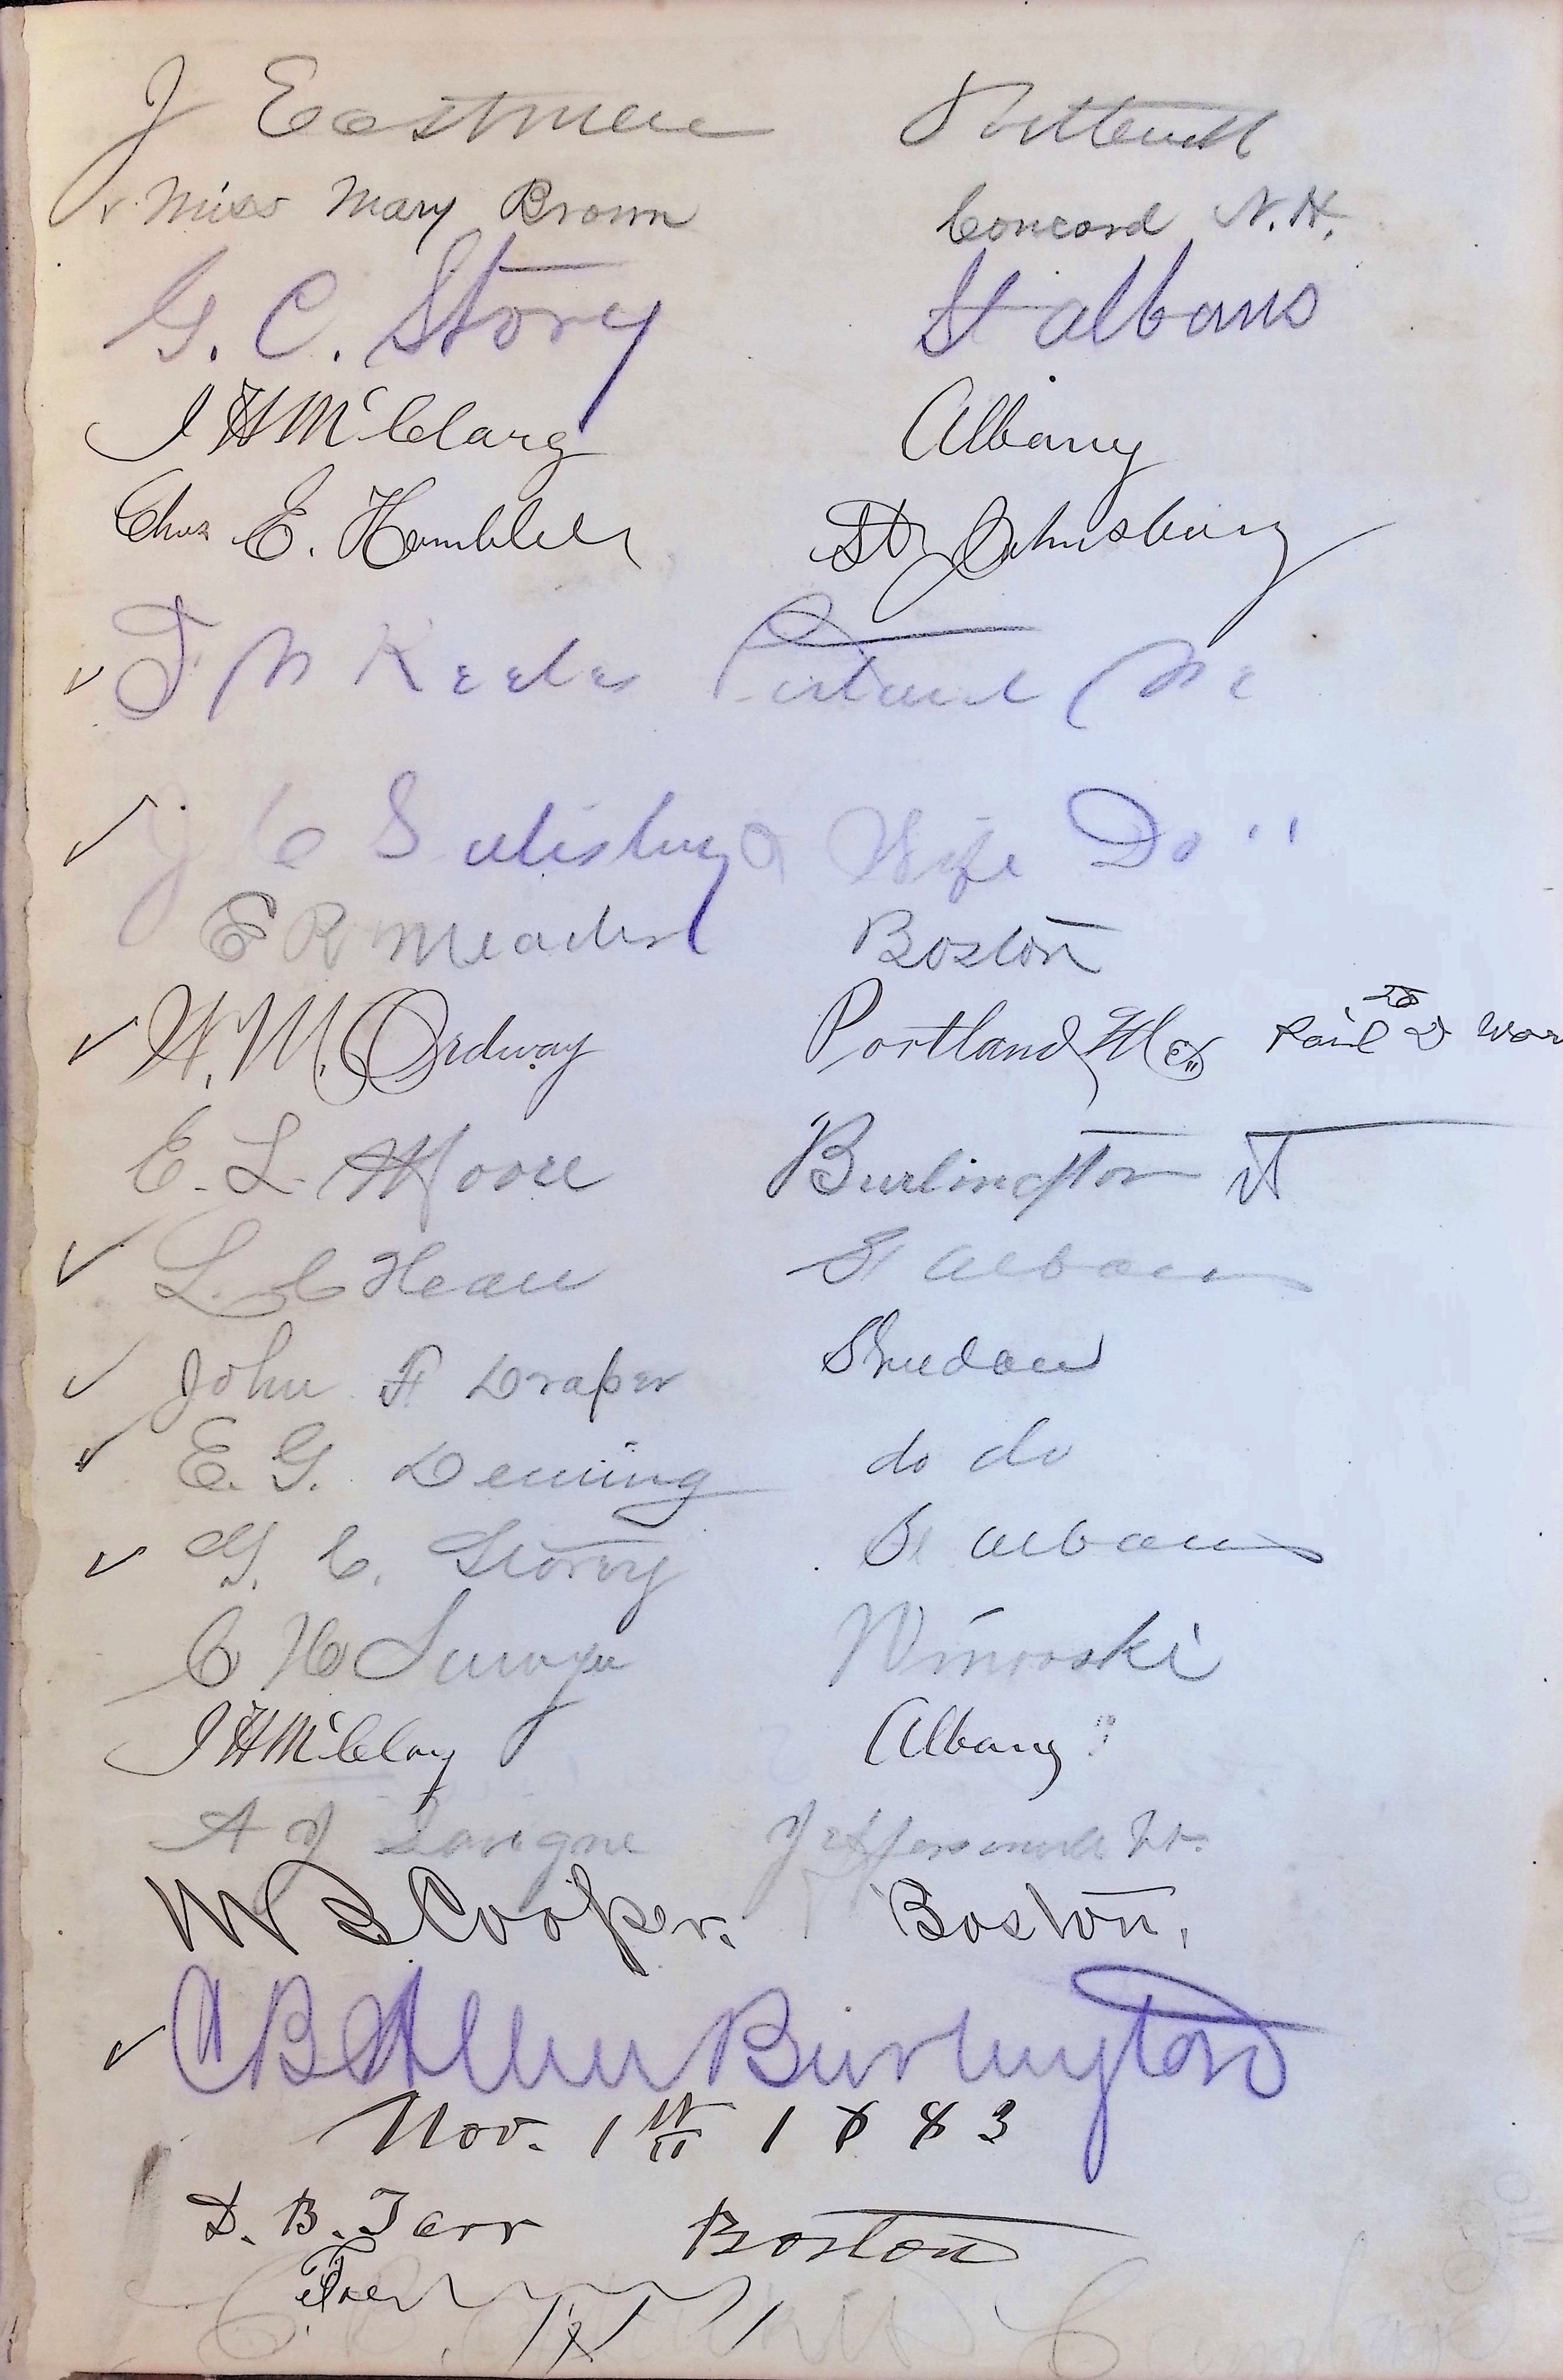 J Eastman
Miss Mary Brown Concord N.H.
G. C. Story St Albans
J H McClary Albany
Chas E. Hambleth St Johnsbury
F M Keeler Portland Me
J C Salisbury & Wife Do "
E R Meader Boston
H. M. Ordway Portland, Me Paid
E. L. Moore Burlington Vt
L. C. St Albans
John F Draper Sheridan
E. G. Deming do do
G. C. Story St Albans
C H Winooski
J H McClary Albany
A J Lavigne Jeffersonville Vt.
W B Cooper. Boston.
A B Allen Burlington
Nov. 1st 1883
D. B. Tarr Boston